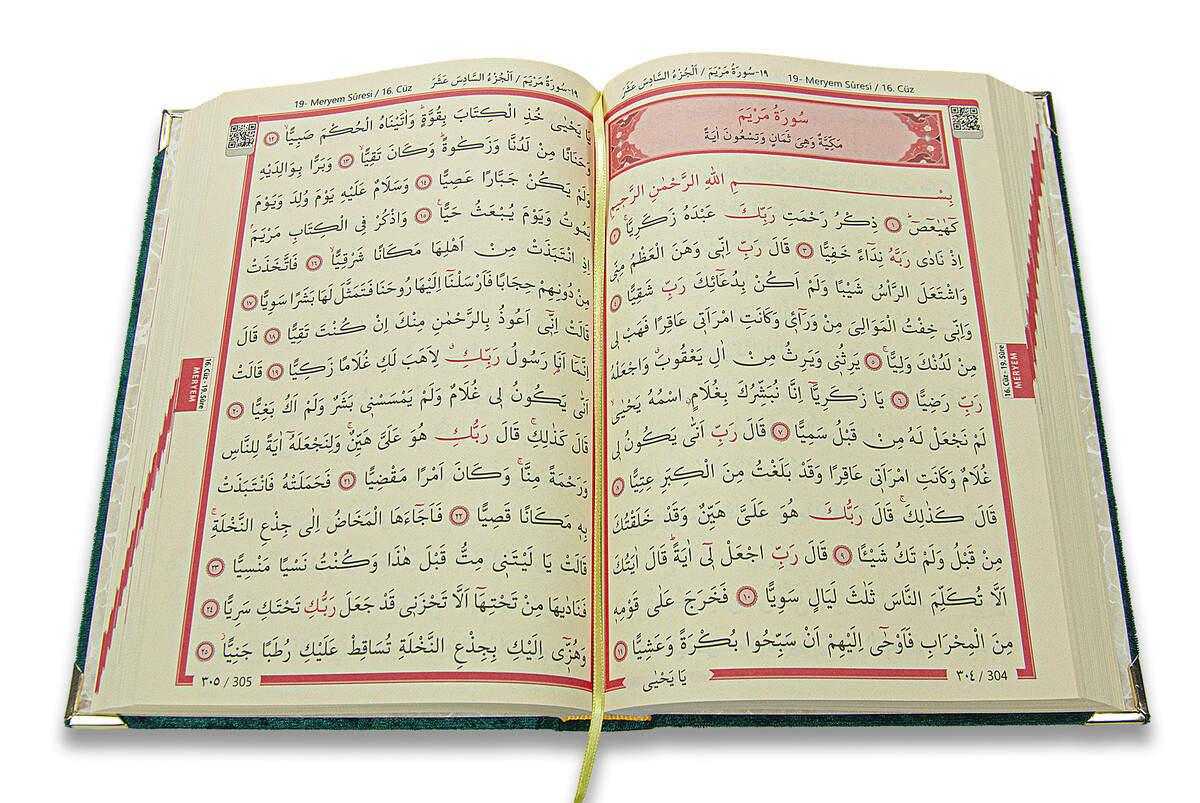 ١٩-سُورَةُ مَرْيَمَ / اَلْجُزْءُ السَّادِسَ عَشَرَ
19- Meryem Sûresi / 16. Cüz
سُورَةُ مَرْيَمَ
مَكِّيَّةٌ وَهِىَ ثَمَانٍ وَتِسْعُونَ اٰيَةً
بِسْمِ اللّٰهِ الرَّحْمٰنِ الرَّحِيمِ
كٓهٰيٰعٓصٓ ۚ ﴿١﴾ ذِكْرُ رَحْمَتِ رَبِّكَ عَبْدَهُ زَكَرِيَّاۚ ﴿٢﴾
اِذْ نَادٰى رَبَّهُ نِدَٓاءً خَفِيًّا ﴿٣﴾ قَالَ رَبِّ اِنّٖى وَهَنَ الْعَظْمُ مِنّٖى
وَاشْتَعَلَ الرَّأْسُ شَيْبًا وَلَمْ اَكُنْ بِدُعَٓائِكَ رَبِّ شَقِيًّا ﴿٤﴾
وَاِنّٖى خِفْتُ الْمَوَالِىَ مِنْ وَرَٓائٖى وَكَانَتِ امْرَاَتٖى عَاقِرًا فَهَبْ لٖى
مِنْ لَدُنْكَ وَلِيًّاۙ ﴿٥﴾ يَرِثُنٖى وَيَرِثُ مِنْ اٰلِ يَعْقُوبَۗ وَاجْعَلْهُ
رَبِّ رَضِيًّا ﴿٦﴾ يَا زَكَرِيَّٓا اِنَّا نُبَشِّرُكَ بِغُلَامٍۨ اسْمُهُ يَحْيٰىۙ
لَمْ نَجْعَلْ لَهُ مِنْ قَبْلُ سَمِيًّا ﴿٧﴾ قَالَ رَبِّ اَنّٰى يَكُونُ لٖى
غُلَامٌ وَكَانَتِ امْرَاَتٖى عَاقِرًا وَقَدْ بَلَغْتُ مِنَ الْكِبَرِ عِتِيًّا ﴿٨﴾
قَالَ كَذٰلِكَۚ قَالَ رَبُّكَ هُوَ عَلَىَّ هَيِّنٌ وَقَدْ خَلَقْتُكَ
مِنْ قَبْلُ وَلَمْ تَكُ شَيْـًٔا ﴿٩﴾ قَالَ رَبِّ اجْعَلْ لٖٓى اٰيَةًۜ قَالَ اٰيَتُكَ
اَلَّا تُكَلِّمَ النَّاسَ ثَلٰثَ لَيَالٍ سَوِيًّا ﴿١٠﴾ فَخَرَجَ عَلٰى قَوْمِهٖ
مِنَ الْمِحْرَابِ فَاَوْحٰٓى اِلَيْهِمْ اَنْ سَبِّحُوا بُكْرَةً وَعَشِيًّا ﴿١١﴾
يَا يَحْيٰى
٣٠٤ / 304
16. Cüz - 19. Sûre
MERYEM
١٩-سُورَةُ مَرْيَمَ / اَلْجُزْءُ السَّادِسَ عَشَرَ
19- Meryem Sûresi / 16. Cüz
يَا يَحْيٰى خُذِ الْكِتَابَ بِقُوَّةٍۜ وَاٰتَيْنَاهُ الْحُكْمَ صَبِيًّاۙ ﴿١٢﴾
وَحَنَانًا مِنْ لَدُنَّا وَزَكٰوةًۜ وَكَانَ تَقِيًّاۙ ﴿١٣﴾ وَبَرًّا بِوَالِدَيْهِ
وَلَمْ يَكُنْ جَبَّارًا عَصِيًّا ﴿١٤﴾ وَسَلَامٌ عَلَيْهِ يَوْمَ وُلِدَ وَيَوْمَ
يَمُوتُ وَيَوْمَ يُبْعَثُ حَيًّاۚ ﴿١٥﴾ وَاذْكُرْ فِى الْكِتَابِ مَرْيَمَۢ
اِذِ انْتَبَذَتْ مِنْ اَهْلِهَا مَكَانًا شَرْقِيًّاۙ ﴿١٦﴾ فَاتَّخَذَتْ
مِنْ دُونِهِمْ حِجَابًا فَاَرْسَلْنَٓا اِلَيْهَا رُوحَنَا فَتَمَثَّلَ لَهَا بَشَرًا سَوِيًّا ﴿١٧﴾
قَالَتْ اِنّٖٓى اَعُوذُ بِالرَّحْمٰنِ مِنْكَ اِنْ كُنْتَ تَقِيًّا ﴿١٨﴾ قَالَ
اِنَّمَٓا اَنَا۬ رَسُولُ رَبِّكِۗ لِاَهَبَ لَكِ غُلَامًا زَكِيًّا ﴿١٩﴾ قَالَتْ
اَنّٰى يَكُونُ لٖى غُلَامٌ وَلَمْ يَمْسَسْنٖى بَشَرٌ وَلَمْ اَكُ بَغِيًّا ﴿٢٠﴾
قَالَ كَذٰلِكِۚ قَالَ رَبُّكِ هُوَ عَلَىَّ هَيِّنٌۚ وَلِنَجْعَلَهُٓ اٰيَةً لِلنَّاسِ
وَرَحْمَةً مِنَّاۚ وَكَانَ اَمْرًا مَقْضِيًّا ﴿٢١﴾ فَحَمَلَتْهُ فَانْتَبَذَتْ
بِهٖ مَكَانًا قَصِيًّا ﴿٢٢﴾ فَاَجَٓاءَهَا الْمَخَاضُ اِلٰى جِذْعِ النَّخْلَةِۚ
قَالَتْ يَا لَيْتَنٖى مِتُّ قَبْلَ هٰذَا وَكُنْتُ نَسْيًا مَنْسِيًّا ﴿٢٣﴾
فَنَادٰيهَا مِنْ تَحْتِهَٓا اَلَّا تَحْزَنٖى قَدْ جَعَلَ رَبُّكِ تَحْتَكِ سَرِيًّا ﴿٢٤﴾
وَهُزّٖٓى اِلَيْكِ بِجِذْعِ النَّخْلَةِ تُسَاقِطْ عَلَيْكِ رُطَبًا جَنِيًّاۘ ﴿٢٥﴾
٣٠٥ / 305
16. Cüz - 19. Sûre
MERYEM